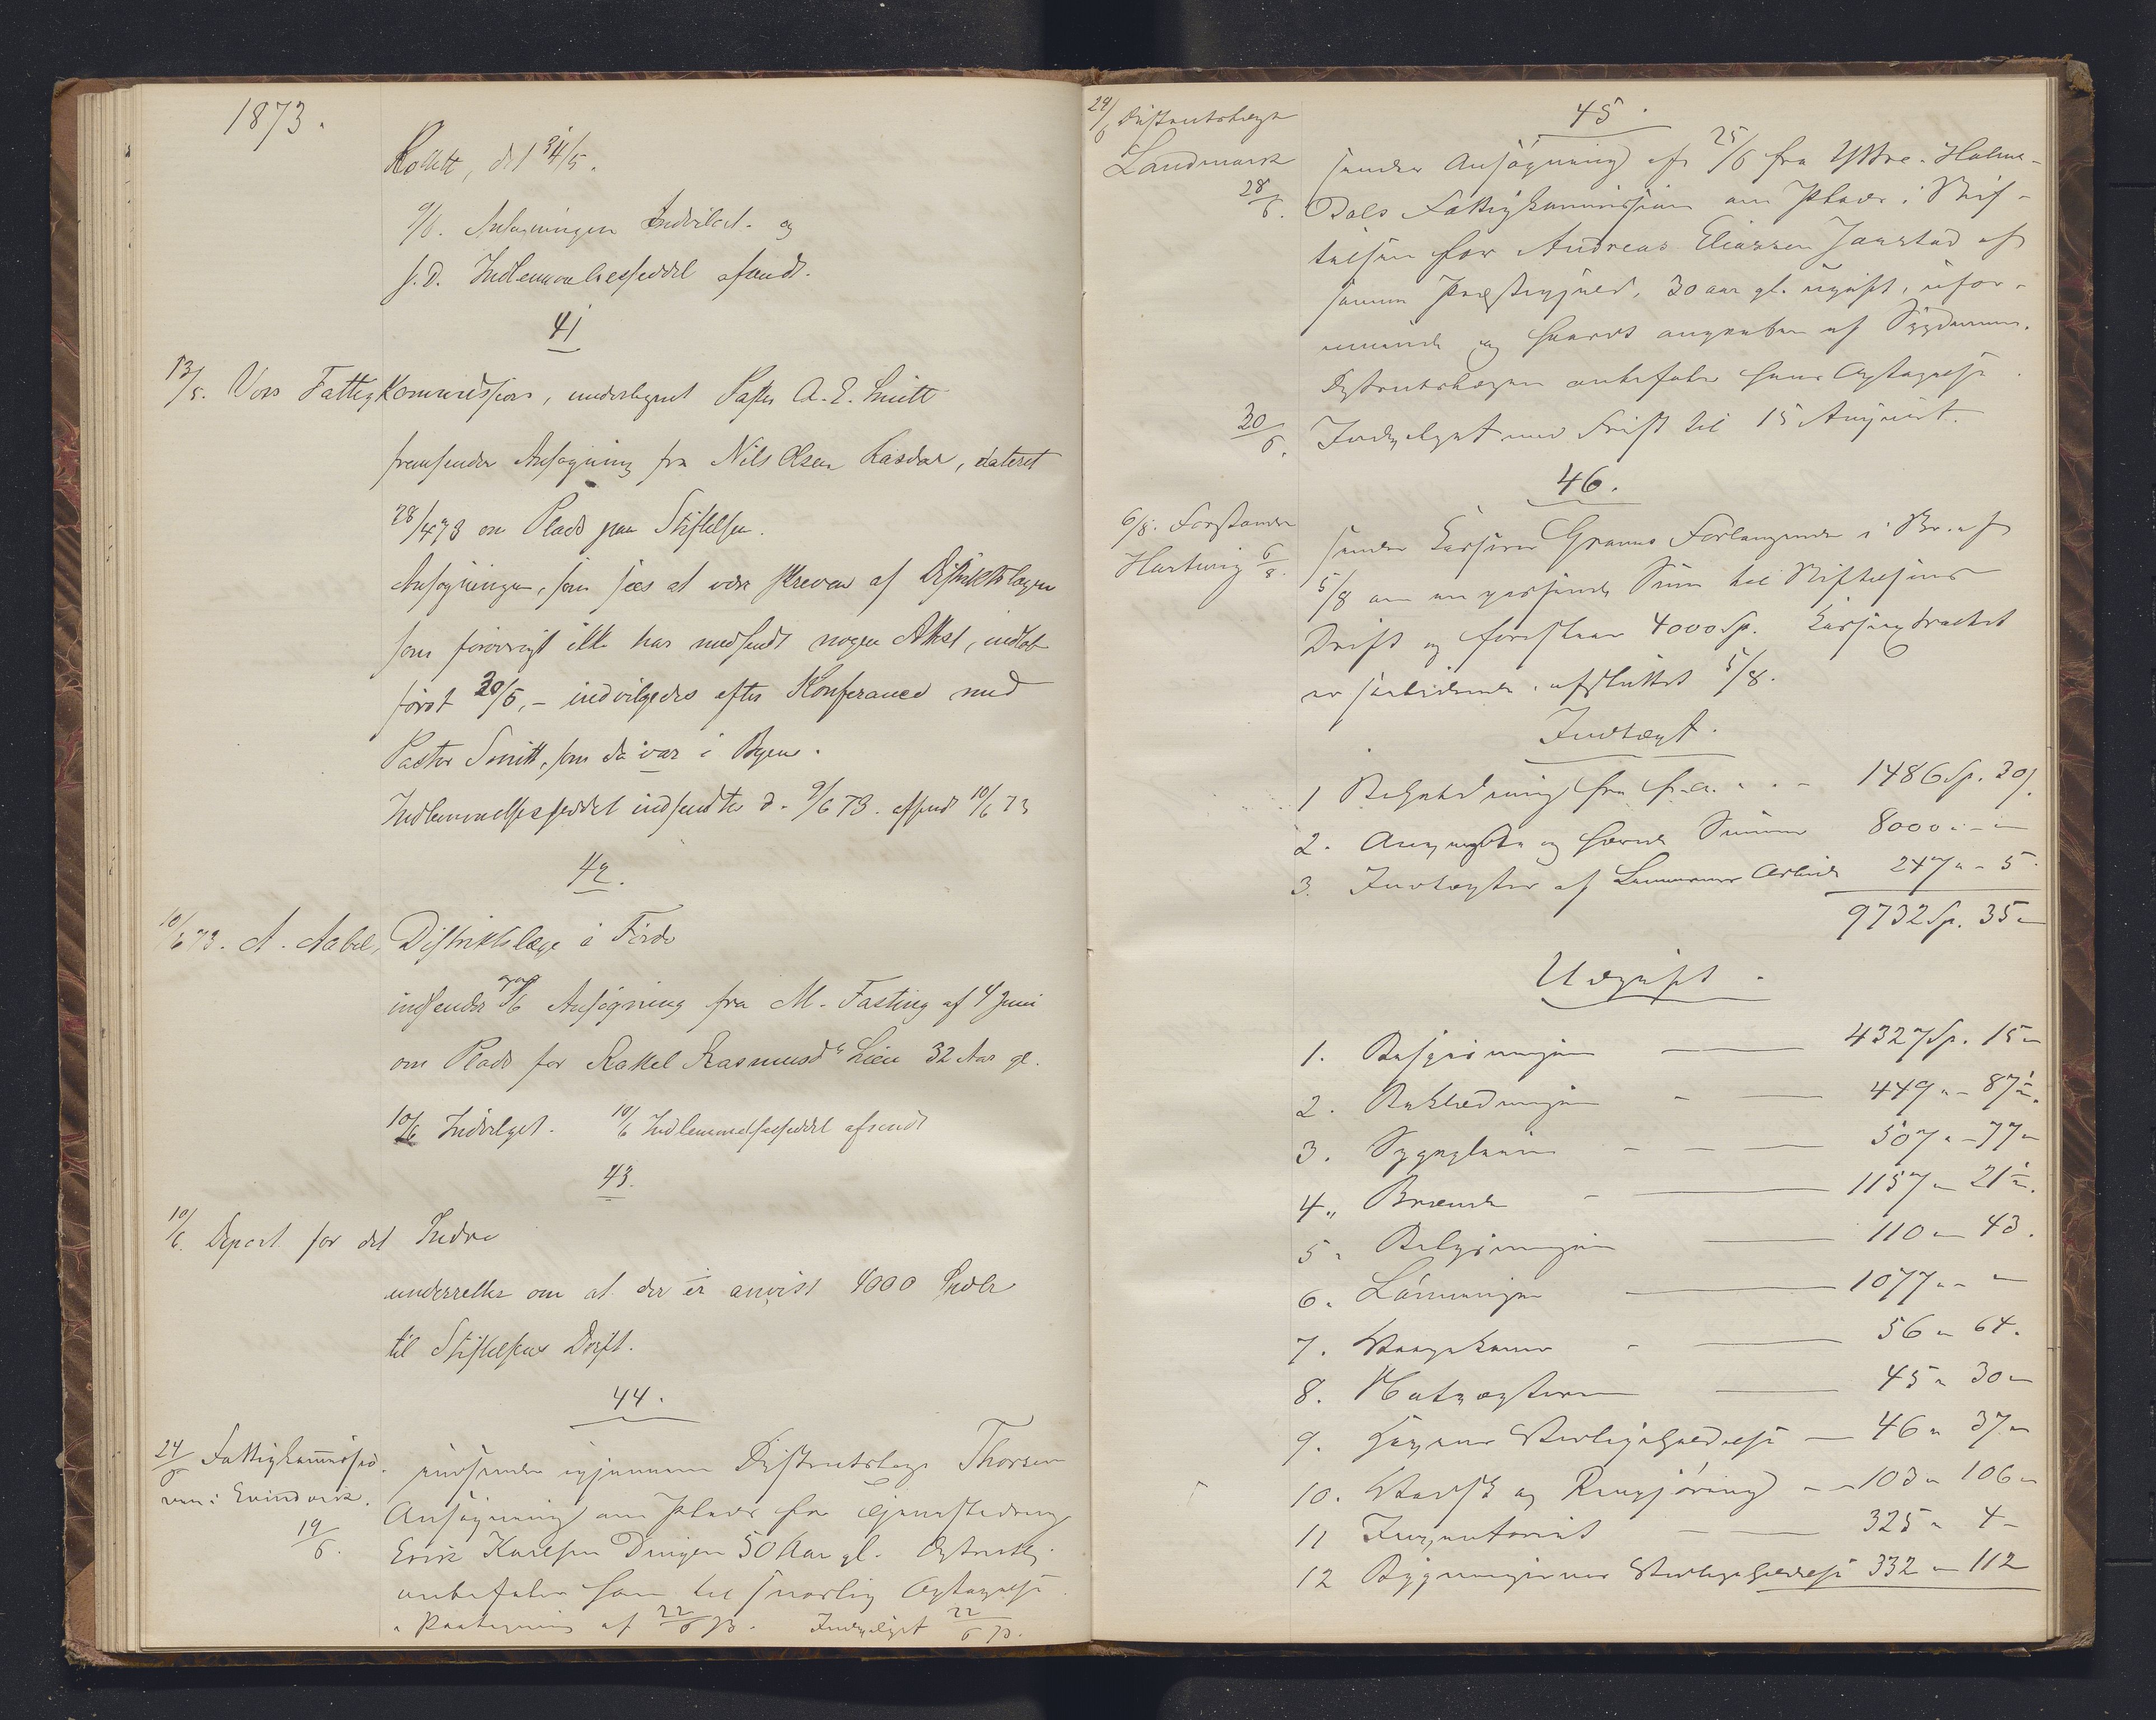 1873.
Kollett, d.
9/6. Ansøgningen Indvilget og
s. D. Indlemmelsesseddel afsendt.
41
13/5. Vors Fattigkommission, undertegnet Pastor A. E. Smitt
fremsender Ansøgning fra Nils Olsen Kasdal, dateret
28/4 73 om Plads paa Stiftelsen.
Ansøgningen, som sees at være skreven af Distriktslægen
som forøvrigt ikke har medsendt nogen Attest, indløb
først 30/5, - indvilgedes efter Konferance med
Pastor Smitt, som da var i Byen.
Indlemmelsesseddel indsendtes d. 9/6 73. afsendt 10/6 73
42.
10/6 73. A. Aabel, Distriktslæge i Førde
indsender Ansøgning fra M. Fasting af 4 Juni
om Plads for Rakkel Rasmusd. Lien 32 Aar gl.
10/6 Indvilget. 10/6 Indlemmelsesseddel afsendt
43.
10/6. Depart for det Indre
underretter om at der er anvist 4000 Spdlr
til Stiftelsens Drift.
44.
24/6 Fattigkommissio-
nen i Evindvik.
19/6.
indsender igjennem Distriktslæge Thorsen
Ansøgning om Plads for Gjenstedning
Erik Karlsen Dingen 50 Aar gl. Distrktl.
anbefaler ham til snarlig Optagelse
i Paategning af 22/6 73. Indvilget 22/6 73.
29/6 Distriktslæge
Landmark
28/6.
45.
sender Ansøgning af 25/6 fra Yttre Holme-
dals Fattigkommission om Plads i Stif-
telsen for Andreas Eliassen Jarstad af
samme Præstegjeld, 30 aar gl. ugift, ufor-
muende og haardt angreben af Sygdommen.
Distriktslægen anbefaler hans Optagelse.
30/6. Indvilget med Frist til 15 August.
46.
6/8. Forstander
Hartwig 6/8.
sender Kasserer Grams Forlangende i Br. af
5/8 om en passende Sum til Stiftelsens
Drift og foreslaar 4000 Sp. Kasseextractet
er saalydende: afsluttet 5/8.
Indtægt.
1 Beholdning fra f. A. . . - 1486 Sp. 30 s.
2. Anvendte og hævede Summer 8000 " - "
3. Indtægter af Lemmernes Arbeide 247 " - 5
9732 Sp. 35 "
Udgift.
1. Bespisningen 4327 Sp. 15 "
2. Beklædningen 449 " - 87½.
3. Sygepleien 507 " - 77 "
4. Brænde 1157 " 21½.
5. Belysningen 110 " 43.
6. Lønninger 1077 " - "
7. Vaagekoner 56 " 64.
8. Natvægteren 45 " 30 "
9. Havens Vedligeholdelse 46 " 37 "
10. Vadsk og Rengjøring 103 " 106 "
11 Inventariet 325 " 4 -
12 Bygningernes Vedligeholdelse 332 " 112